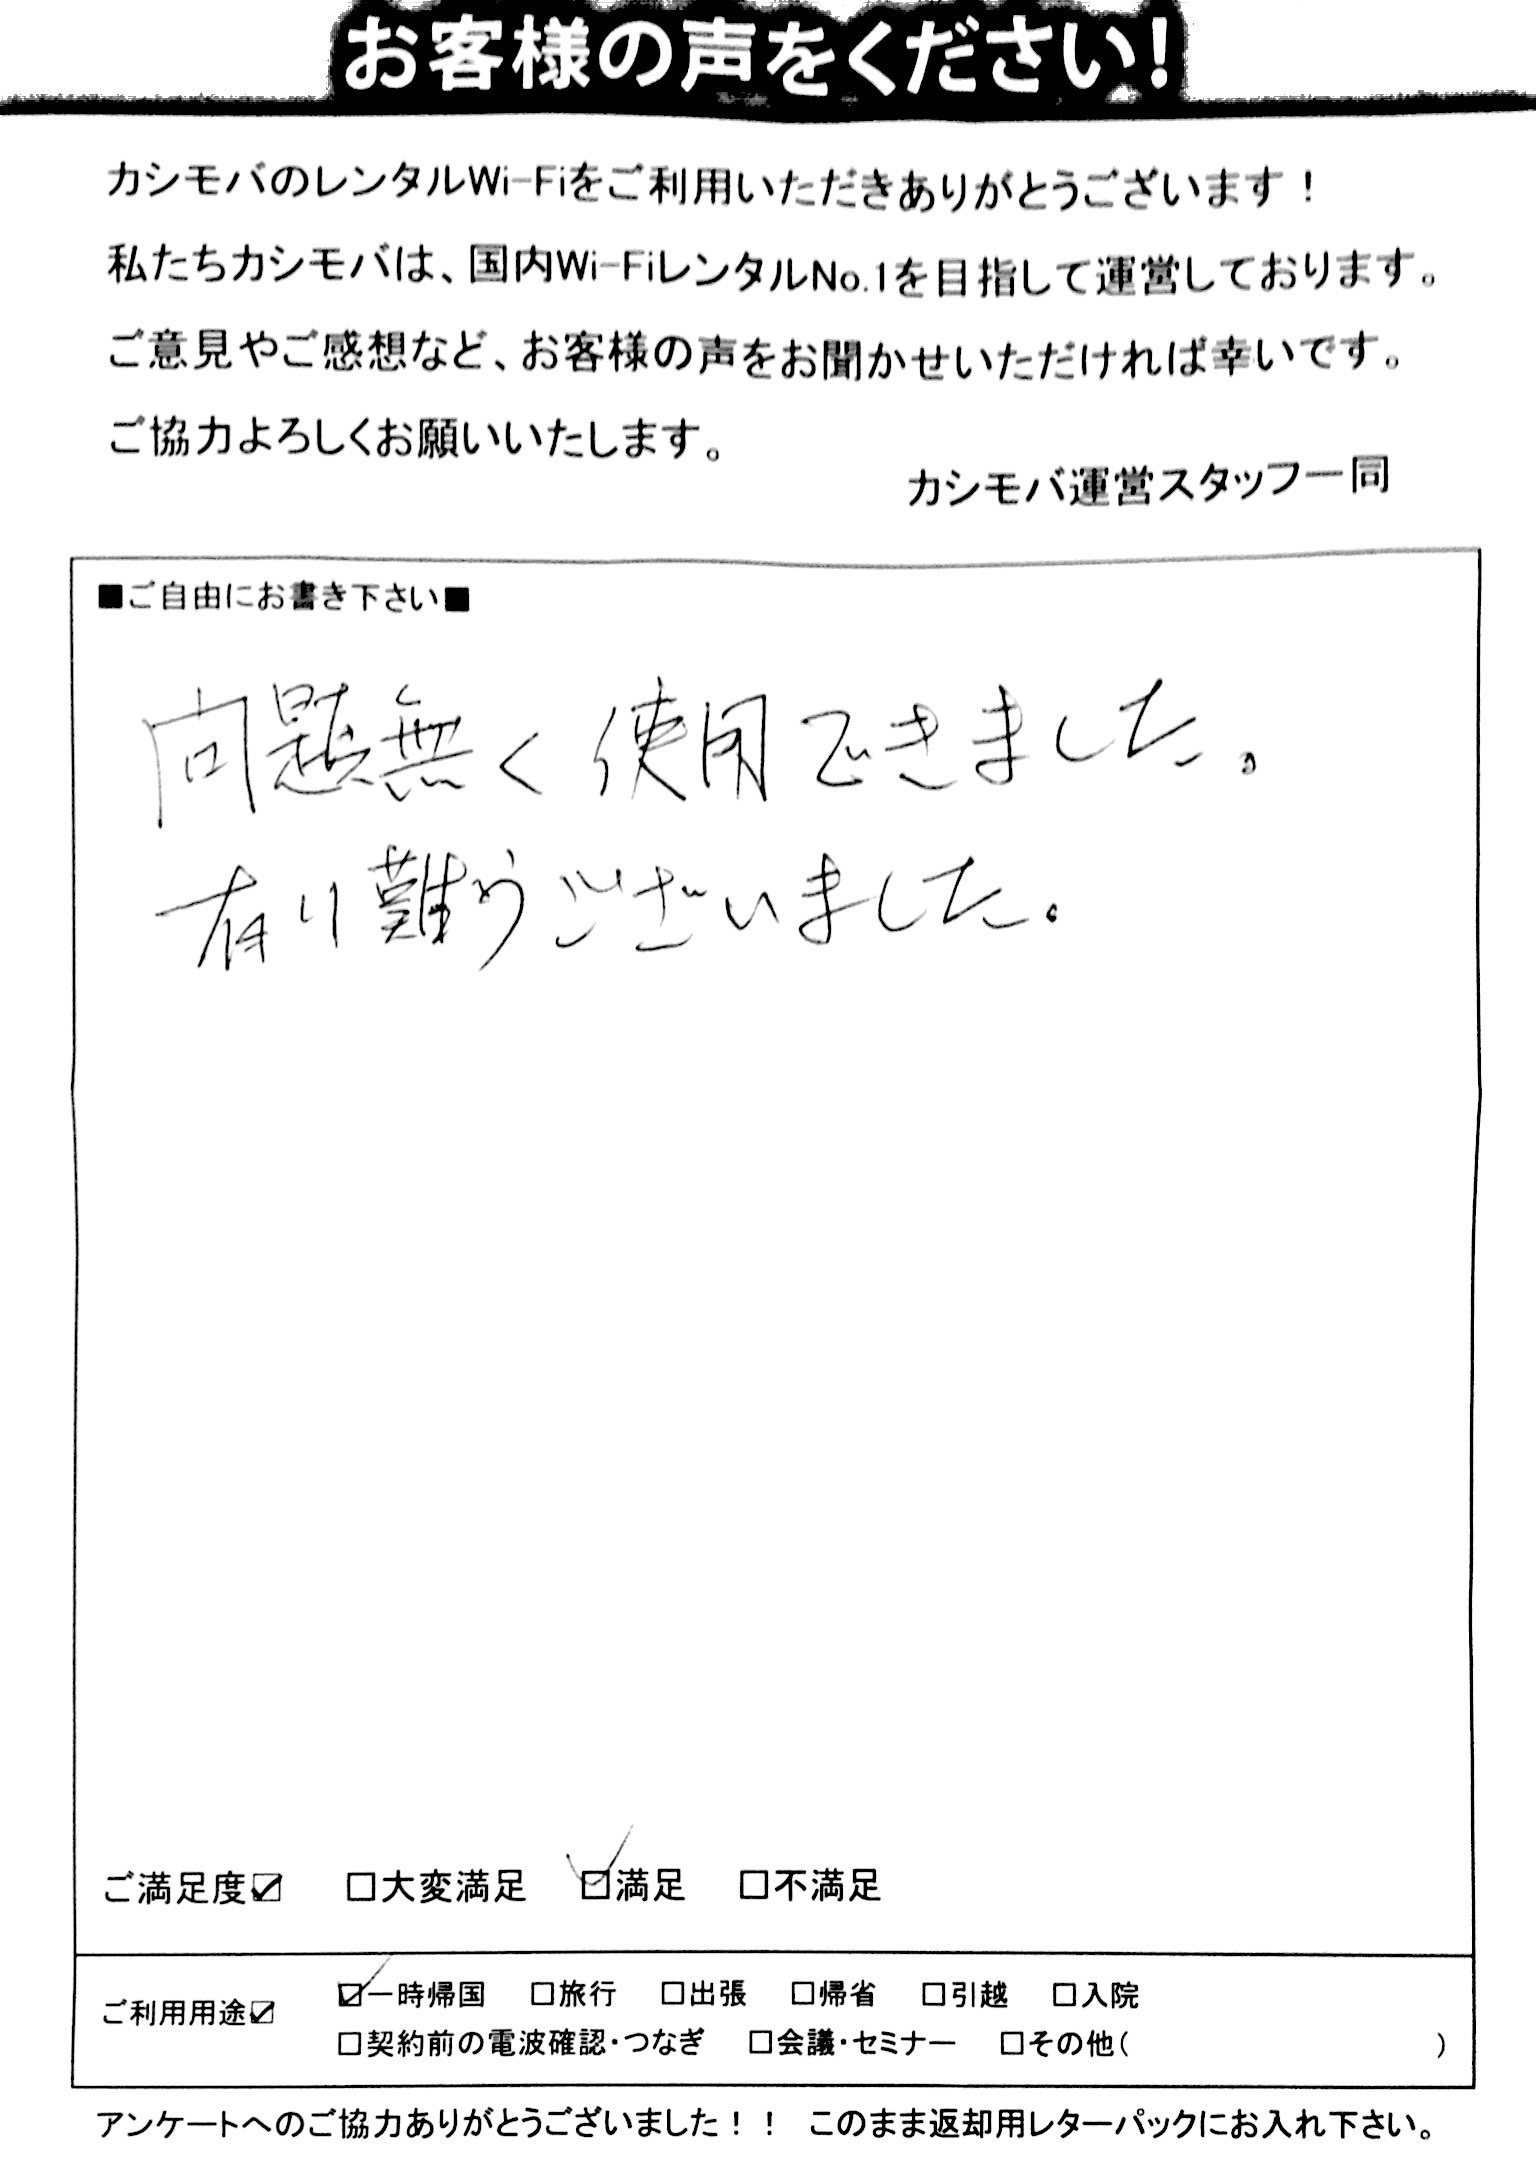 お客様の声をください!
カシモバのレンタルWi-Fiをご利用いただきありがとうございます！
私たちカシモバは、国内Wi-FiレンタルNo.1を目指して運営しております。
ご意見やご感想など、お客様の声をお聞かせいただければ幸いです。
ご協力よろしくお願いいたします。
カシモバ運営スタッフ一同
■ご自由にお書き下さい■
問題無く使用できました。
有り難うございました。
ご満足度☑ □大変満足 ☑満足 □不満足
ご利用用途☑ ☑一時帰国 □旅行 □出張 □帰省 □引越 □入院
□契約前の電波確認・つなぎ □会議・セミナー □その他( )
アンケートへのご協力ありがとうございました！！ このまま返却用レターパックにお入れ下さい。